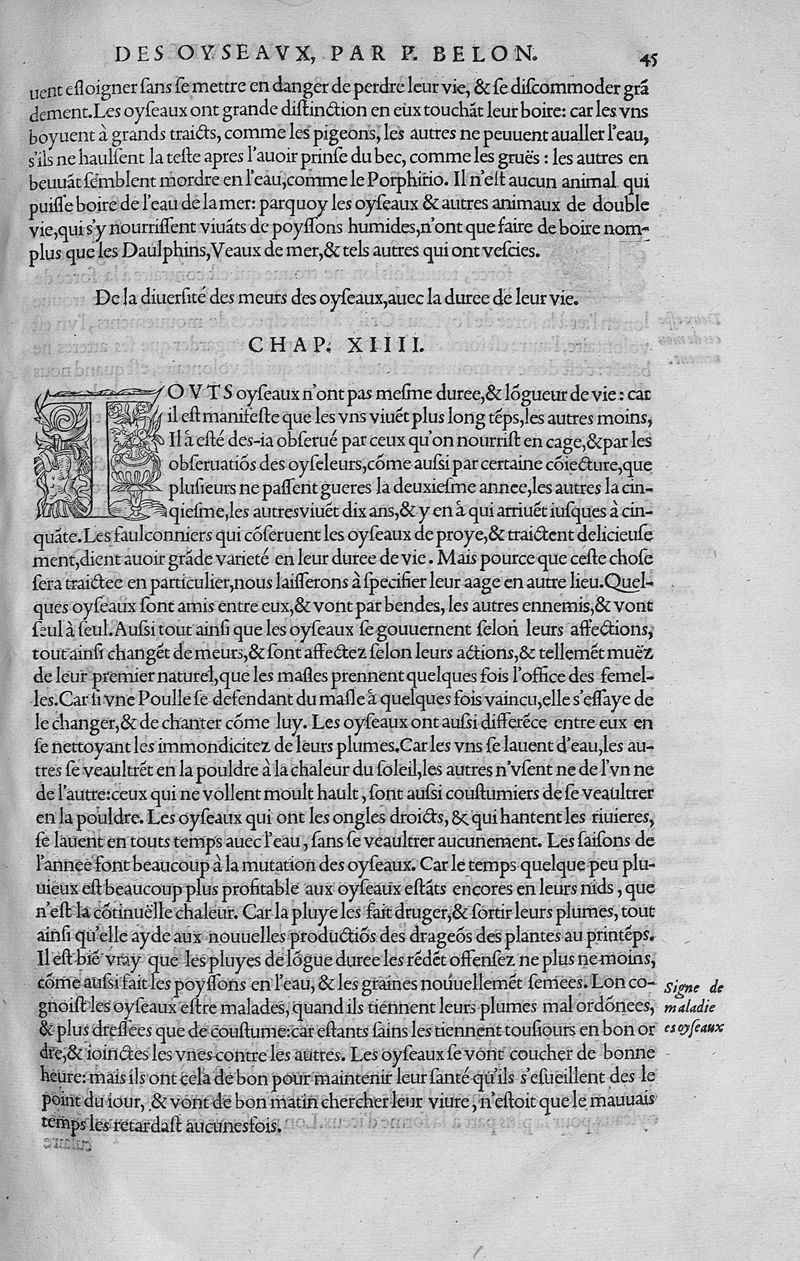 DES OYSEAVX, PAR P. BELON. 45
uent esloigner sans se mettre en danger de perdre leur vie, & se discommoder grã
dement.Les oyseaux ont grande distinction en eux touchãt leur boire: car les vns
boyuent à grands traicts, comme les pigeons, les autres ne peuuent aualler l'eau,
s'ils ne haulsent la teste apres l'auoir prinse du bec, comme les gruës : les autres en
beuuãt semblent mordre en l'eau,comme le Porphirio. Il n'est aucun animal qui
puisse boire de l'eau de la mer: parquoy les oyseaux & autres animaux de double
vie,qui s'y nourrissent viuãts de poyssons humides,n'ont que faire de boire nom-
plus que les Daulphins,Veaux de mer,& tels autres qui ont vescies.
De la diuersité des meurs des oyseaux,auec la duree de leur vie.
CHAP. XIIII.
TOVTS oyseaux n'ont pas mesme duree,& lõgueur de vie : car
il est manifeste que les vns viuẽt plus long tẽps,les autres moins,
Il à esté des-ia obserué par ceux qu'on nourrist en cage,&par les
obseruatiõs des oyseleurs,cõme aussi par certaine cõiecture,que
plusieurs ne passent gueres la deuxiesme annee,les autres la cin-
qiesme,les autres viuẽt dix ans,& y en à qui arriuẽt iusques à cin-
quãte.Les faulconniers qui cõseruent les oyseaux de proye,& traictent delicieuse
ment,dient auoir grãde varieté en leur duree de vie . Mais pource que ceste chose
sera traictee en particulier,nous laisserons à specifier leur aage en autre lieu.Quel-
ques oyseaux sont amis entre eux,& vont par bendes, les autres ennemis,& vont
seul à seul.Aussi tout ainsi que les oyseaux se gouuernent selon leurs affections,
tout ainsi changẽt de meurs,& sont affectez selon leurs actions,& tellemẽt muëz
de leur premier naturel,que les masles prennent quelques fois l'office des femel-
les.Car si vne Poulle se defendant du masle à quelques fois vaincu,elle s'essaye de
le changer,& de chanter cõme luy. Les oyseaux ont aussi differẽce entre eux en
se nettoyant les immondicitez de leurs plumes.Car les vns se lauent d'eau,les au-
tres se veaultrẽt en la pouldre à la chaleur du soleil,les autres n'vsent ne de l'vn ne
de l'autre:ceux qui ne vollent moult hault, sont aussi coustumiers de se veaultrer
en la pouldre. Les oyseaux qui ont les ongles droicts, & qui hantent les riuieres,
se lauent en touts temps auec l'eau , sans se veaultrer aucunement. Les saisons de
l'annee font beaucoup à la mutation des oyseaux. Car le temps quelque peu plu-
uieux est beaucoup plus profitable aux oyseaux estãts encores en leurs nids , que
n'est la cõtinuëlle chaleur. Car la pluye les fait druger,& sortir leurs plumes, tout
ainsi qu'elle ayde aux nouuelles productiõs des drageõs des plantes au printẽps.
Il est biẽ vray que les pluyes de lõgue duree les rẽdẽt offensez ne plus ne moins,
cõme aussi fait les poyssons en l'eau, & les graines nouuellemẽt semees. Lon co-
gnoist les oyseaux estre malades, quand ils tiennent leurs plumes mal ordõnees,
& plus dressees que de coustume:car estants sains les tiennent tousiours en bon or
dre,& ioinctes les vnes contre les autres. Les oyseaux se vont coucher de bonne
heure: mais ils ont cela de bon pour maintenir leur santé qu'ils s'esueillent des le
point du iour, & vont de bon matin chercher leur viure , n'estoit que le mauuais
temps les retardast aucunesfois.
Signe de
maladie
es oyseaux